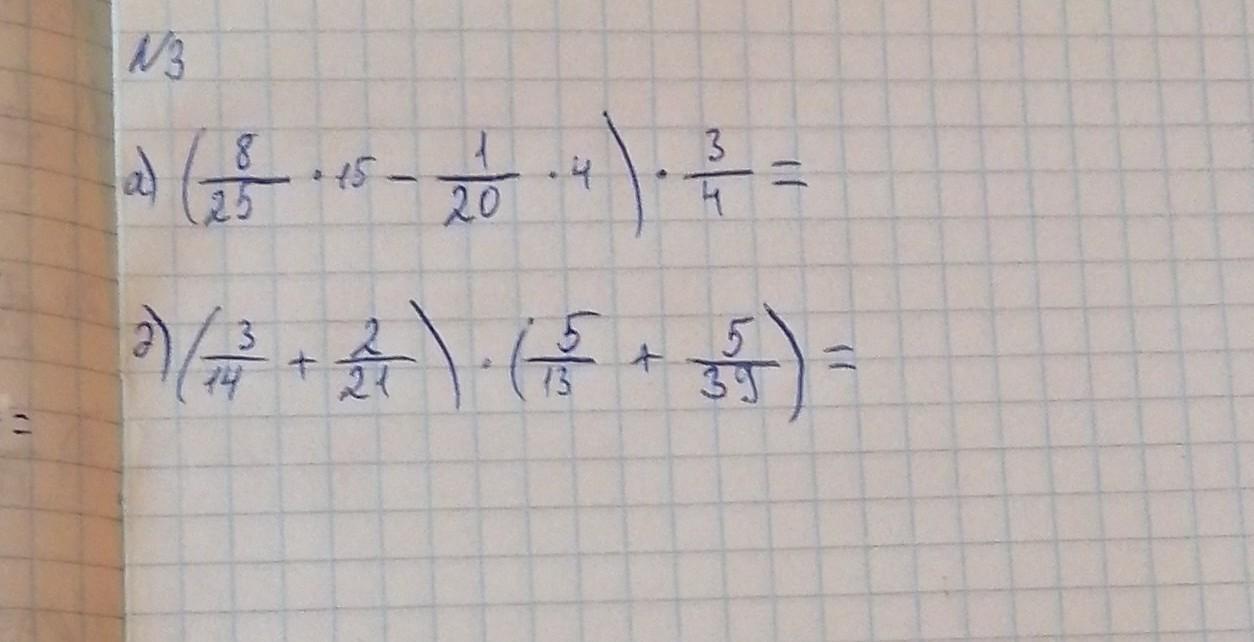 №3
а) (8/25 · 15 − 1/20 · 4) · 3/4 =
б) (3/14 + 2/21) · (5/13 + 5/39) =
=